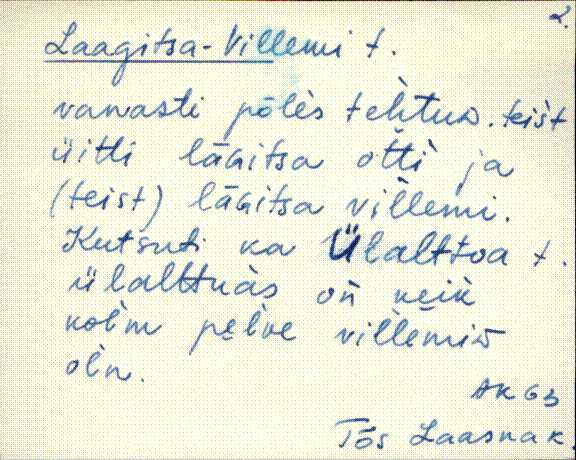 2.
Laagitsa-Villemi t.
vanasti põlès tehtus. teist
üitti läGitsa otti ja
(teist) läGitsa villemi.
Kutsuti ka Ülalttoa t.
ülalttuàs on keik
kolm pelve villemiD
oln.
AK 63
Tõs Laasnak.